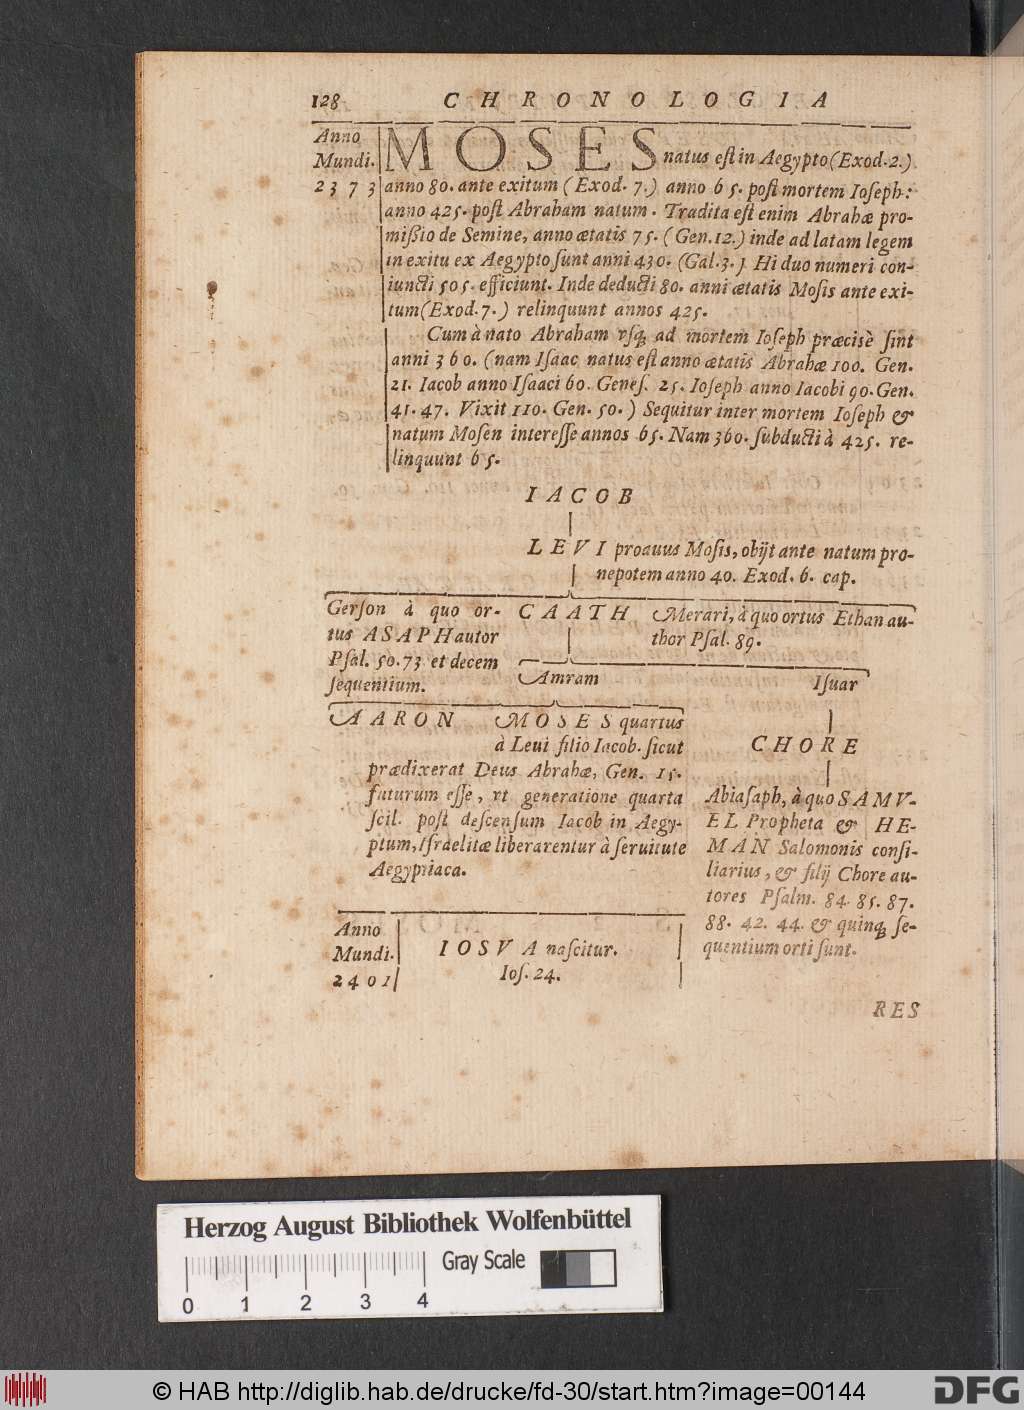 128 CHRONOLOGIA
Anno
Mundi.
2373
MOSES natus est in Aegypto (Exod. 2.)
anno 80. ante exitum (Exod. 7.) anno 65. post mortem Ioseph:
anno 425. post Abraham natum. Tradita est enim Abrahæ pro-
mißio de Semine, anno ætatis 75. (Gen. 12.) inde ad latam legem
in exitu ex Aegypto sunt anni 430. (Gal. 3.) Hi duo numeri con-
iuncti 505. efficiunt. Inde deducti 80. anni ætatis Mosis ante exi-
tum (Exod. 7.) relinquunt annos 425.
Cum à nato Abraham vsq; ad mortem Ioseph præcisè sint
anni 360. (nam Isaac natus est anno ætatis Abrahæ 100. Gen.
21. Iacob anno Isaaci 60. Genes. 25. Ioseph anno Iacobi 90. Gen.
41. 47. Vixit 110. Gen. 50.) Sequitur inter mortem Ioseph &
natum Mosen interesse annos 65. Nam 360. subducti à 425. re-
linquunt 65.
IACOB
LEVI proauus Mosis, obijt ante natum pro-
nepotem anno 40. Exod. 6. cap.
Gerson à quo or-
tus ASAPH autor
Psal. 50. 73 et decem
sequentium.
CAATH
Merari, à quo ortus Ethan au-
thor Psal. 89.
Amram
Isuar
AARON
MOSES quartus
à Leui filio Iacob. sicut
prædixerat Deus Abrahæ, Gen. 15.
futurum esse, vt generatione quarta
scil. post descensum Iacob in Aegy-
ptum, Israelitæ liberarentur à seruitute
Aegyptiaca.
CHORE
Abiasaph, à quo SAMV-
EL Propheta & HE-
MAN Salomonis consi-
liarius, & filij Chore au-
tores Psalm. 84. 85. 87.
88. 42. 44. & quinq; se-
quentium orti sunt.
Anno
Mundi.
2401
IOSVA nascitur.
Ios. 24.
RES
Herzog August Bibliothek Wolfenbüttel
Gray Scale
0 1 2 3 4
© HAB http://diglib.hab.de/drucke/fd-30/start.htm?image=00144
DFG